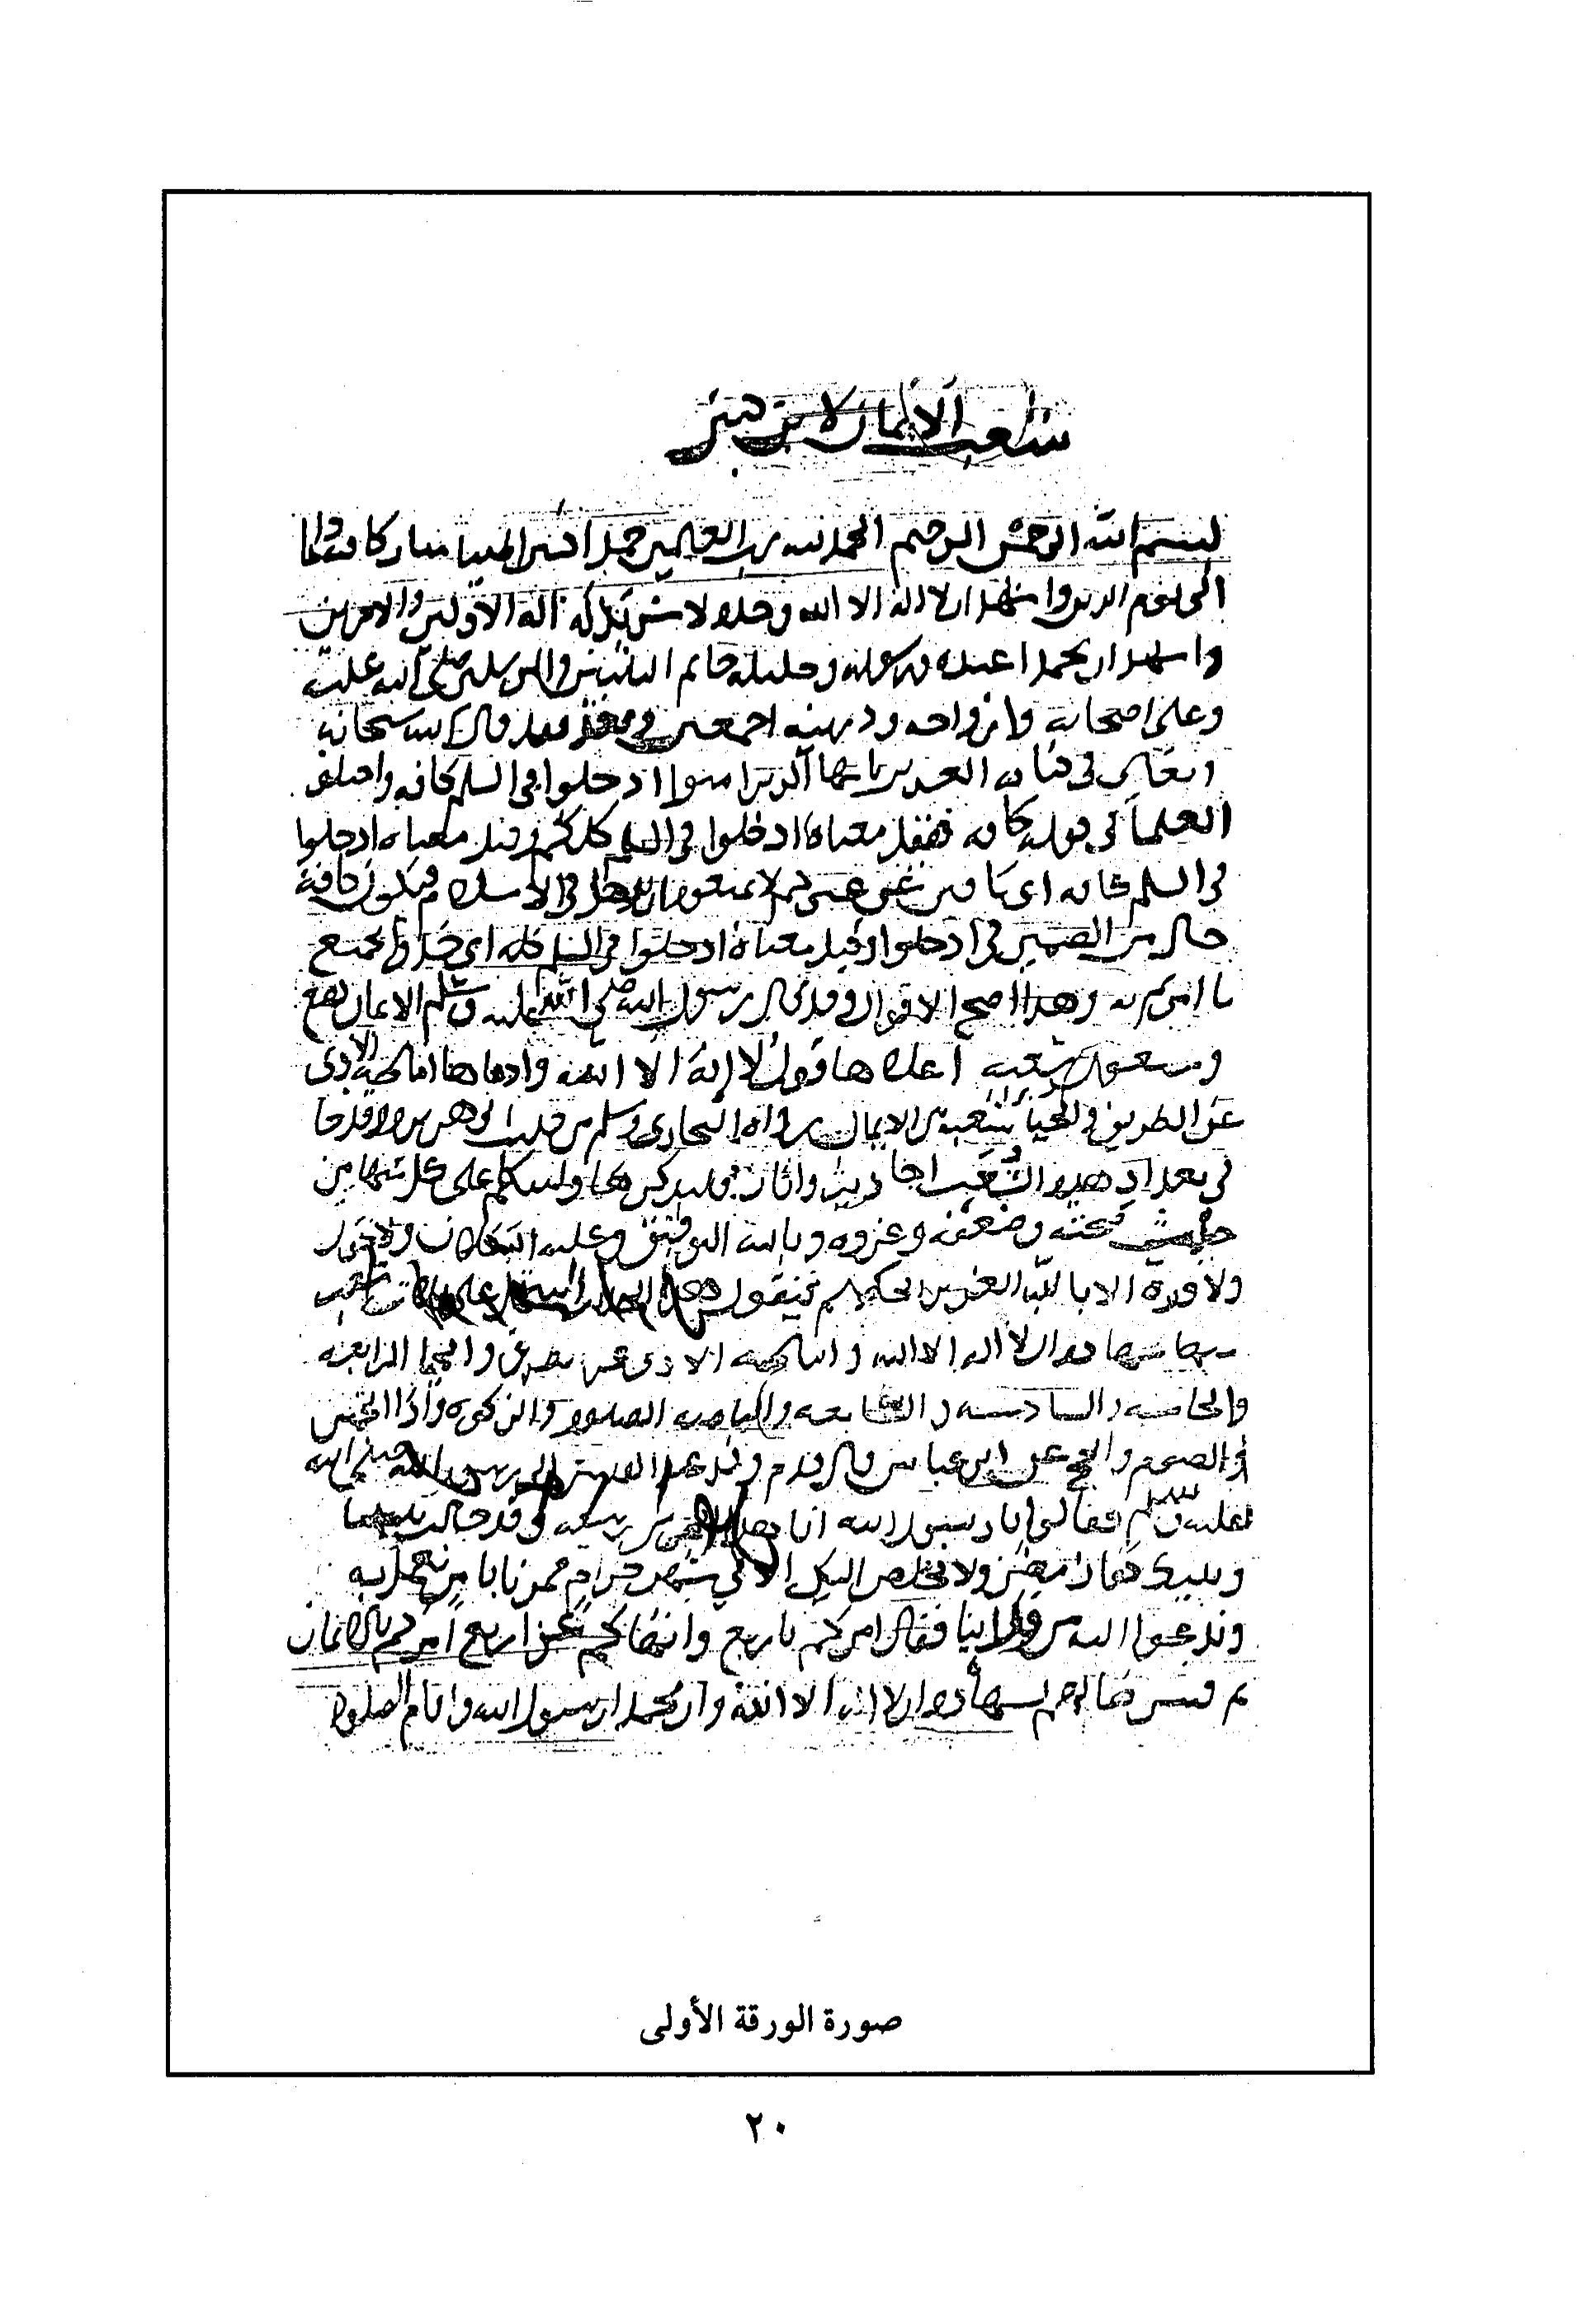 شعب الايمان لابن كثير
بسم الله الرحمن الرحيم الحمد لله رب العالمين حمدا كثيرا طيبا مباركا
الى يوم الدين واشهد ان لا اله الا الله وحده لا شريك له اله الاولين والاخرين
واشهد ان محمدا عبده ورسوله وخليله خاتم النبيين والمرسلين صلى الله عليه
وعلى اصحابه وازواجه وذريته اجمعين وبعد فقد قال الله سبحانه
وتعالى في كتابه العزيز يايها الذين امنوا ادخلوا في السلم كافة واختلف
العلما في قوله كافه فقيل معناه ادخلوا في السلم كلكم وقيل معناه ادخلوا
في السلم كافه اى
حال من الضمير في ادخلوا وقيل معناه ادخلوا في السلم كله اى خذوا بجميع
ما امركم به وهذا اصح الاقوال وقد قال رسول الله صلى الله عليه وسلم الايمان بضع
وسبعون شعبه اعلاها قول لا إله الا الله وادناها اماطة الاذى
عن الطريق والحيا شعبه من الايمان رواه البخارى ومسلم من حديث ابى هريره وقد جا
في تعداد هذه الشعب احاديث واثار فلنذكرها ولنتكلم على كل منها من
حيث صحته وضعفه وعزوه وبالله التوفيق وعليه التكلان ولا حول
ولا قوة الا بالله العزيز الحكيم فنقول
منها شهاده ان لا اله الا الله واماطه الاذى عن الطريق والحيا الرابعه
والخامسه والسادسه والسابعه والثامنه الصلوه والزكوه وادا الخمس
والصوم والحج عن ابن عباس قال قدم وفد عبد القيس الى رسول الله صلى الله
عليه وسلم فقالوا يا رسول الله انا هذا الحي من ربيعه وقد حالت بيننا
وبينك كفار مضر ولا نخلص اليك الا في شهر حرام فمرنا بامر نعمل به
وندعوا اليه من وراينا فقال امركم باربع وانهاكم عن اربع امركم بالايمان
ثم فسرها لهم شهادة ان لا اله الا الله وان محمدا رسول الله واقام الصلوة
صورة الورقة الأولى
٢٠